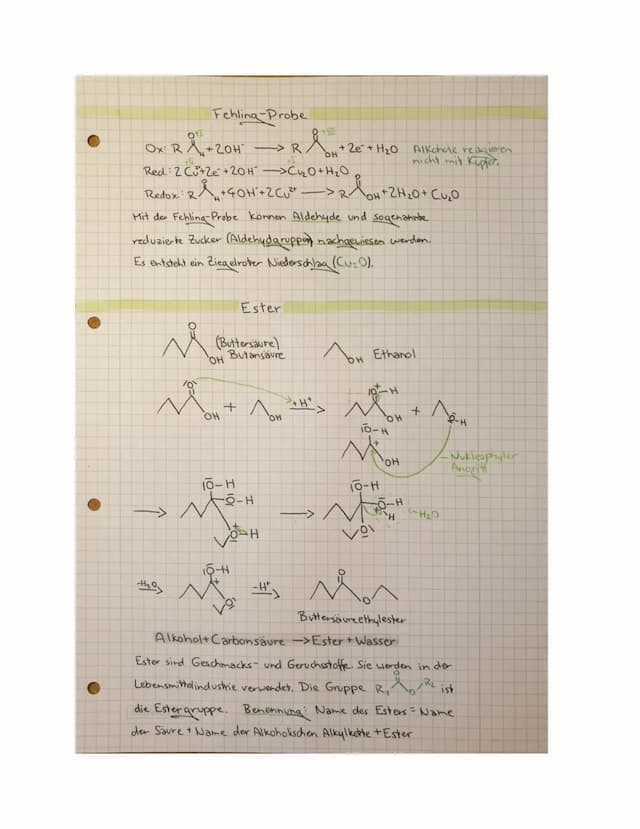 Fehling-Probe
+I +III
Ox: R H + 2OH⁻ → R OH + 2e⁻ + H₂O Alkohole reagieren
nicht mit Kupfer.
+II +I
Red.: 2 Cu²⁺ + 2e⁻ + 2OH⁻ → Cu₂O + H₂O
Redox: R H + 4OH⁻ + 2Cu²⁺ → R OH + 2H₂O + Cu₂O
Mit der Fehling-Probe können Aldehyde und sogenannte
reduzierte Zucker (Aldehydgruppen) nachgewiesen werden.
Es entsteht ein Ziegelroter Niederschlag (Cu₂O).
Ester
O (Buttersäure)
OH Butansäure OH Ethanol
O OH + OH +H⁺ → O–H OH + O–H
O–H OH
Nukleophyler
Angriff
→ O–H O–H O–H → O–H O–H H O -H₂O
-H₂O → O–H O -H⁺ → O O
Buttersäureethylester
Alkohol + Carbonsäure → Ester + Wasser
Ester sind Geschmacks- und Geruchsstoffe. Sie werden in der
Lebensmittelindustrie verwendet. Die Gruppe R₁ O O R₂ ist
die Estergruppe. Benennung: Name des Esters = Name
der Säure + Name der Alkoholischen Alkylkette + Ester